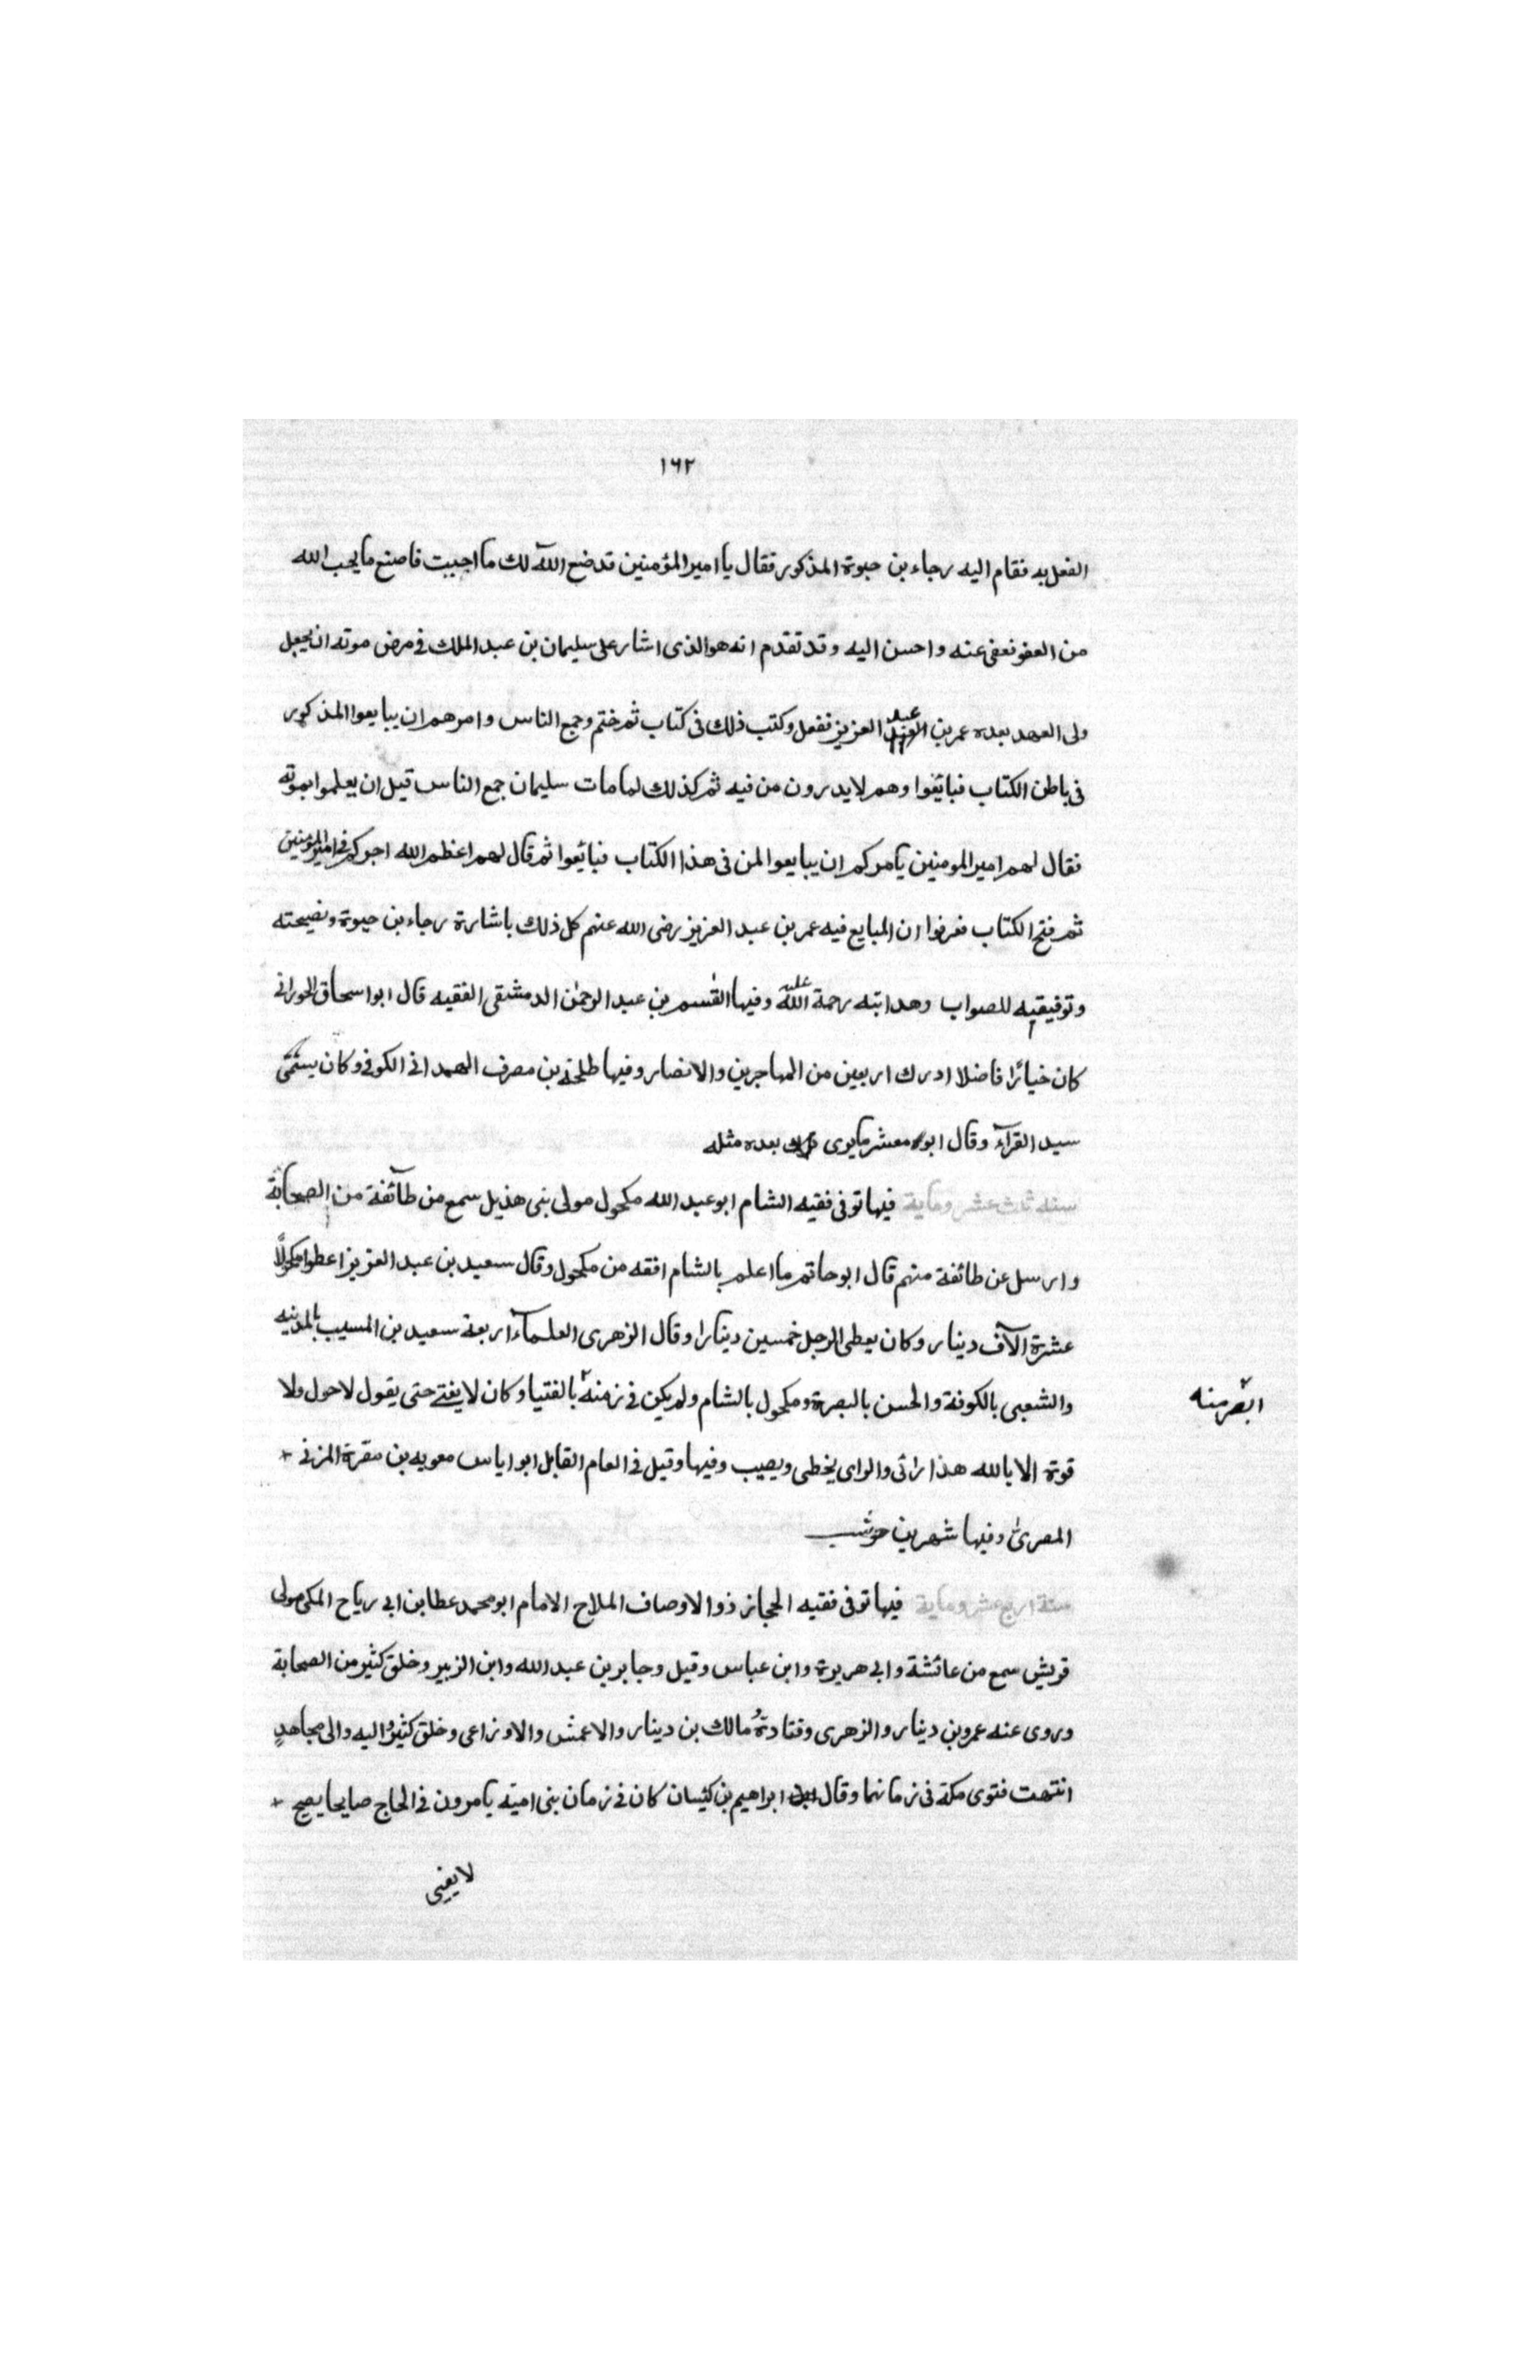 ١٦٢
الفعل به فقام اليه رجاء بن حيوة المذكور فقال يا امير المؤمنين قد صنع الله لك ما احببت فاصنع ما يحب الله
من العفو فعفى عنه واحسن اليه وقد تقدم انه هو الذى اشار على سليمان بن عبد الملك فى مرض موته ان يجعل
ولى العهد بعده عمر بن عبد العزيز ففعل وكتب ذلك فى كتاب ثم ختم وجمع الناس وامرهم ان يبايعوا المذكور
فى باطن الكتاب فبائعوا وهم لا يدرون من فيه ثم كذلك لما مات سليمان جمع الناس قبل ان يعلموا بموته
فقال لهم امير المومنين يأمركم ان يبايعوا لمن فى هذا الكتاب فبائعوا ثم قال لهم اعظم الله اجركم فى امير المؤمنين
ثم فتح الكتاب فعرفوا ان المبايع فيه عمر بن عبد العزيز رضى الله عنهم كل ذلك باشارة رجاء بن حيوة ونصيحته
وتوفيقيه للصواب وهدايته رحمة الله عليه وفيها القسم بن عبد الرحمن الدمشقى الفقيه قال ابو اسحاق الحورانى
كان خيائرا فاضلا ادرك اربعين من المهاجرين والانصار وفيها طلحة بن مصرف الهمدانى الكوفى وكان يسمى
سيد القرآء وقال ابو معشر ما يرى بعده مثله
سنه ثلث عشر وماية فيها توفى فقيه الشام ابو عبد الله مكحول مولى بنى هذيل سمع من طآئفة من الصحابة
وارسل عن طائفة منهم قال ابو حاتم ما اعلم بالشام افقه من مكحول وقال سعيد بن عبد العزيز اعطوا مكحولًا
عشرة الآف دينار وكان يعطى الرجل خمسين دينارا وقال الزهرى العلمآء اربعة سعيد بن المسيب بالمدينه
والشعبى بالكوفة والحسن بالبصرة ومكحول بالشام ولم يكن فى زمنه بالفتيا وكان لا يفتى حتى يقول لا حول ولا
ابصر منه
قوة الا بالله هذا رائى والراى يخطى ويصيب وفيها وقيل فى العام القابل ابو اياس معويه بن مقرة المزنى
المصرى وفيها شهر بن حوشب
سنة اربع عشر وماية فيها توفى فقيه الحجاز ذو الاوصاف الملاح الامام ابو محمد عطا بن ابى رياح المكى مولى
قريش سمع من عائشة وابى هريرة وابن عباس وقيل وجابر بن عبد الله وابن الزبير وخلق كثير من الصحابة
وروى عنه عمرو بن دينار والزهرى وقتادة ومالك بن دينار والاعمش والاوزاعى وخلق كثير واليه والى مجاهد
انتهت فتوى مكة فى زمانهما وقال ابراهيم بن كيسان كان فى زمان بنى امية يأمرون فى الحاج صايحا يصيح
لا يفتى